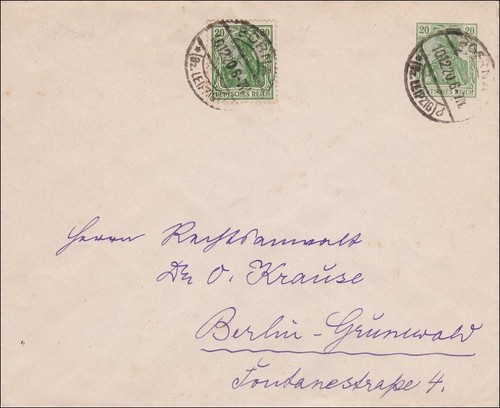 20 20
DEUTSCHES REICH
BORNA
10.12.20.6-7N.
*(Bz. LEIPZIG)
20 20
DEUTSCHES REICH
BORNA
10.12.20
(Bz. LEIPZIG)
Herrn Rechtsanwalt
Dr. O. Krause
Berlin-Grunewald
Fontanestraße 4.